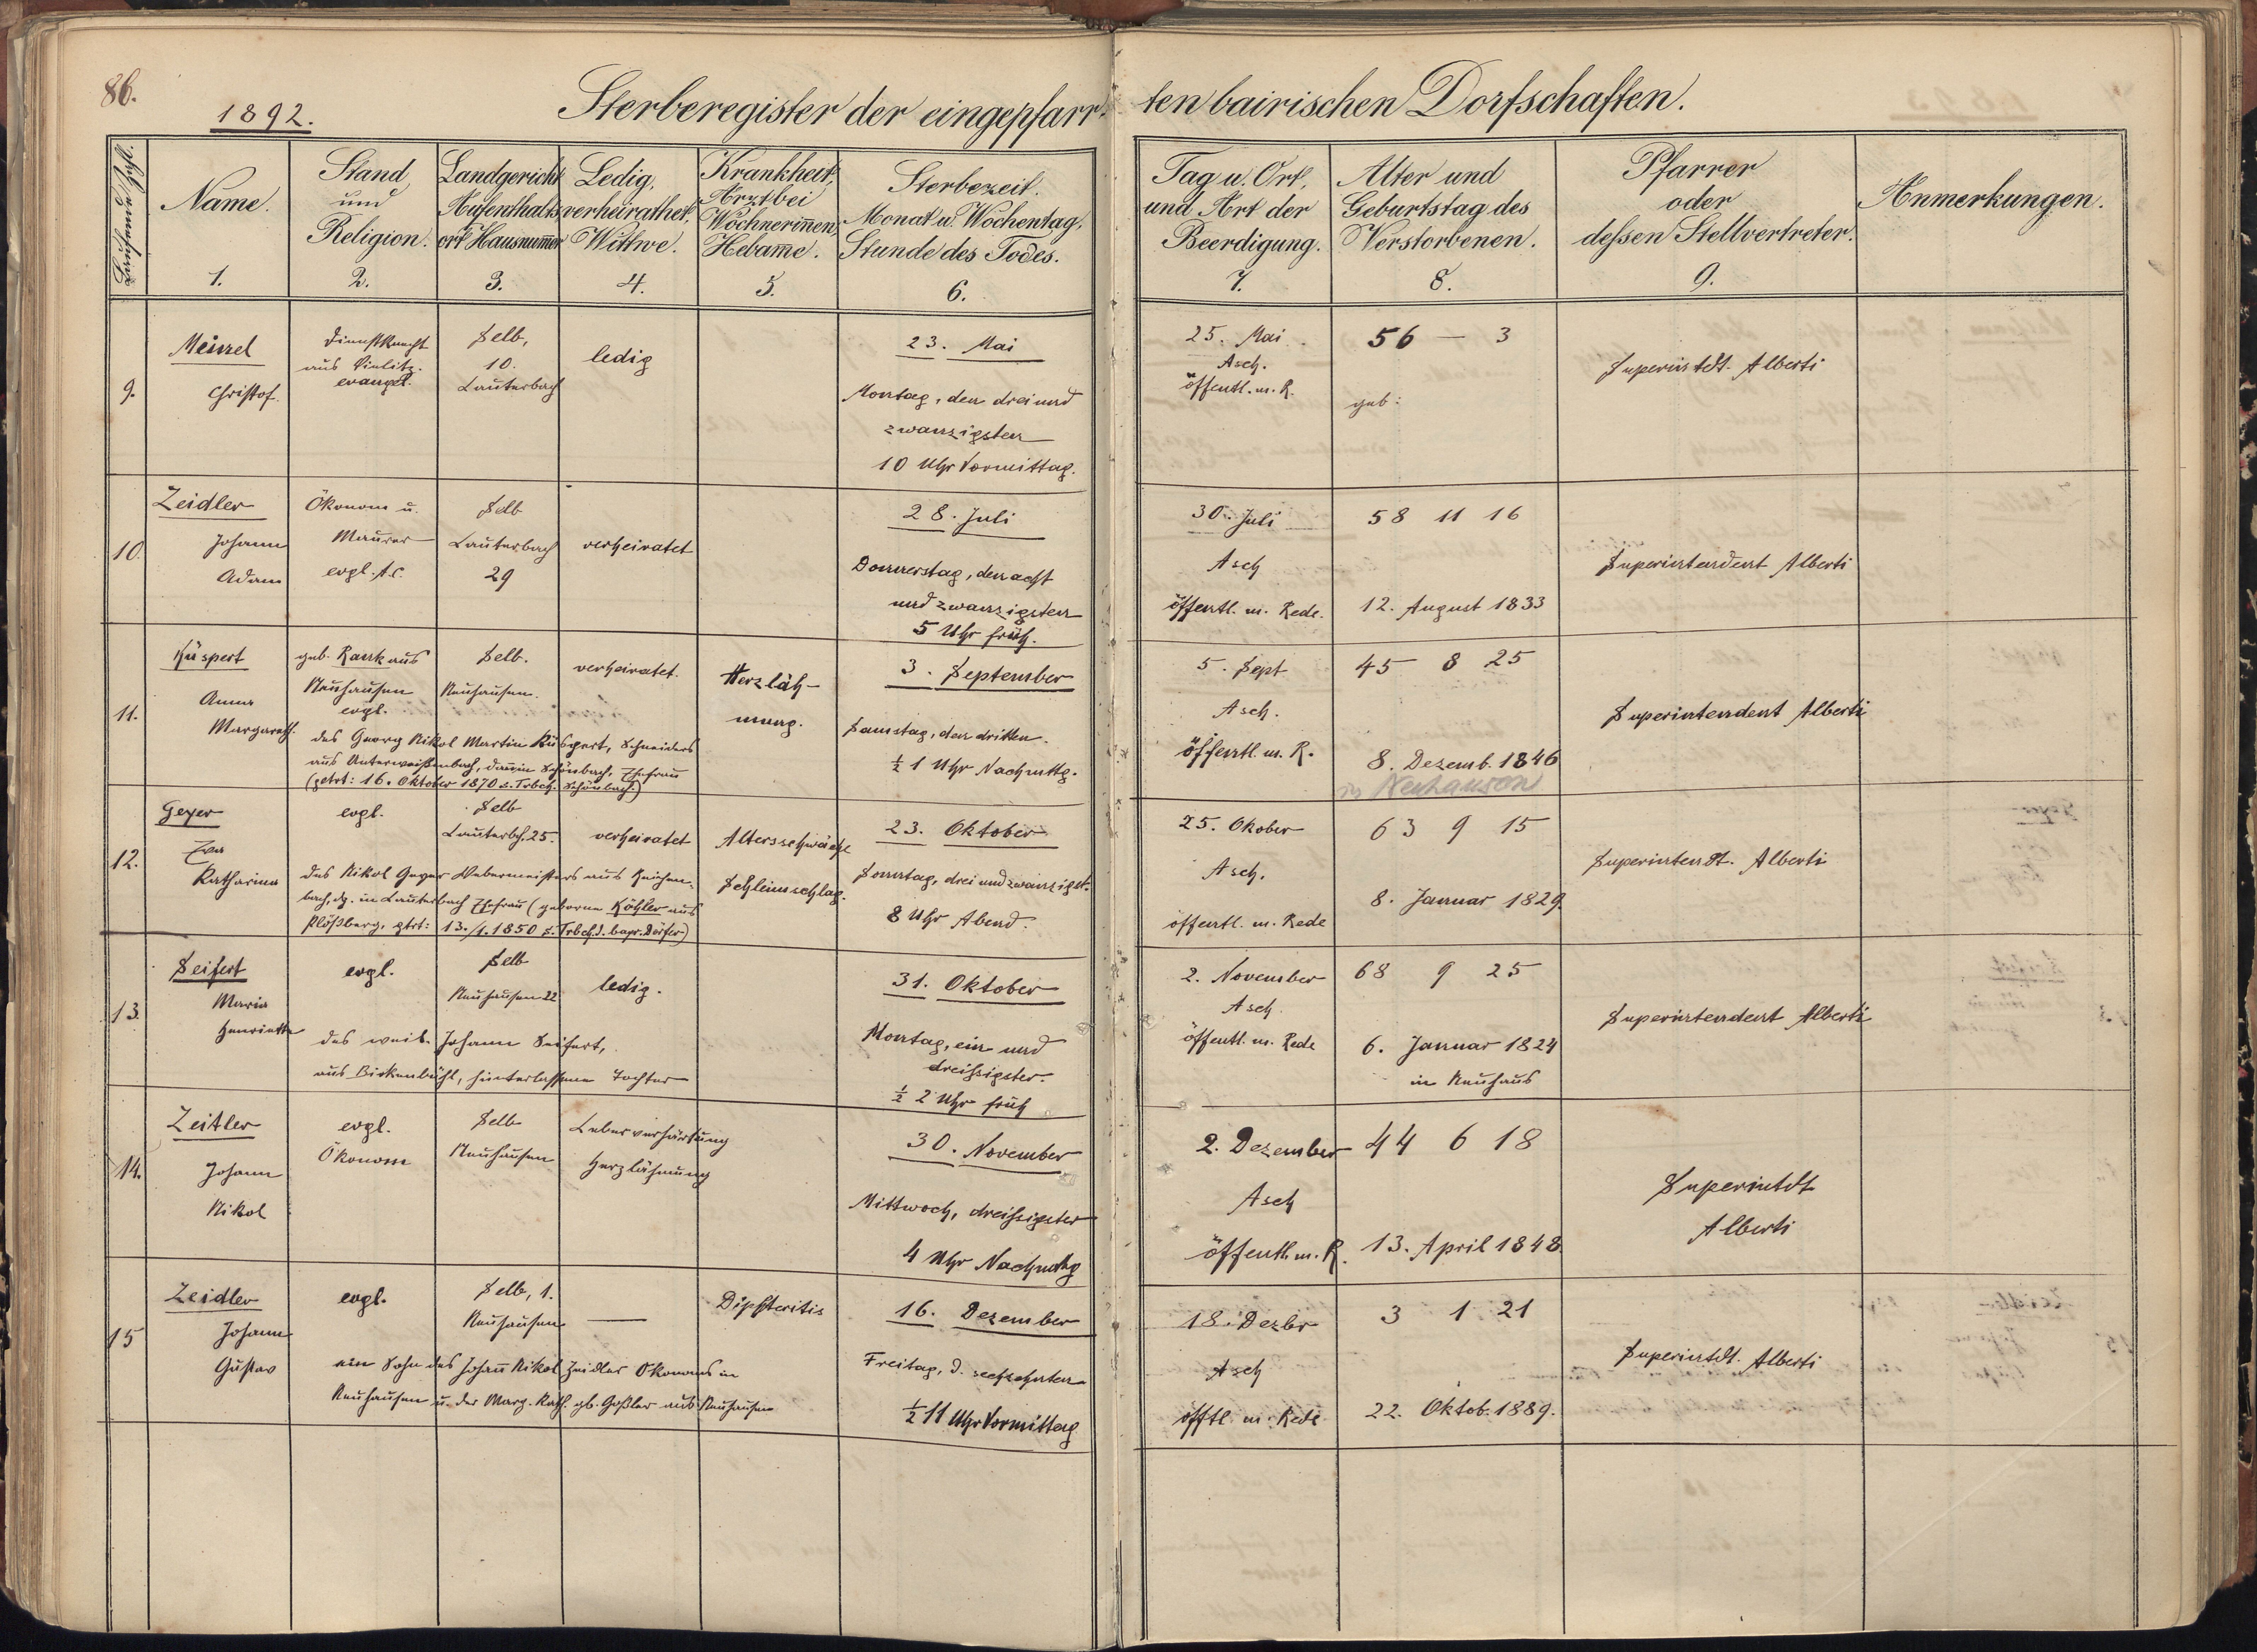 86.
1892.
Sterberegister der eingepfarr-
ten bairischen Dorfschaften.
Laufende Zahl.
Name.
1.
Stand
und
Religion.
2.
Landgericht
Aufenthalts
ort Hausnum̅er
3.
Ledig,
verheirathet.
Wittwe.
4.
Krankheit,
Arzt bei
Wöchnerin̅en,
Hebam̅e.
5.
Sterbezeit.
Monat u. Wochentag,
Stunde des Todes.
6.
Tag u. Ort,
und Art der
Beerdigung.
7.
Alter und
Geburtstag des
Verstorbenen.
8.
Pfarrer
oder
deſsen Stellvertreter.
9.
Anmerkungen.
9.
Meinzel
Christof.
Dienstknecht
aus Vielitz.
evangel.
Selb,
10.
Lauterbach
ledig
23. Mai
Montag, den drei und
zwanzigsten
10 Uhr Vormittag.
25. Mai
Asch.
öffentl. m. R.
56 — 3
geb:
Superintdt. Alberti
10.
Zeidler
Johann
Adam
Ökonom u.
Maurer
evgl. A.C.
Selb
Lauterbach
29
verheiratet
28. Juli
Donnerstag, den acht
und zwanzigsten
5 Uhr früh.
30. Juli
Asch
öffentl. m. Rede.
58 11 16
12. August 1833
Superintendent Alberti
11.
Küspert
Anna
Margareth.
geb. Rank aus
Neuhausen
evgl.
Selb.
Neuhausen.
verheiratet.
Herzläh-
mung.
des Georg Nikol Martin Küspert, Schneiders
aus Unterweißenbach, dan̅ in Schönbach, Ehefrau
(getrt: 16. Oktober 1870 s. Trbch. Schönbach.)
3. September
Samstag, den dritten.
½ 1 Uhr Nachmttg.
5. Sept
Asch.
öffentl. m. R.
45 8 25
8. Dezemb. 1846
in Neuhausen
Superintendent Alberti
12.
Geyer
Eva
Katharina
evgl.
Selb
Lauterbch. 25.
verheiratet
Altersschwäche
Schleimschlag.
des Nikol Geyer Webermeisters aus Reichen-
bach, dz. in Lauterbach Ehefrau (geborne Köhler aus
Plößberg, gtrt: 13./1. 1850 s. Trbch. d. bayr. Dörfer)
23. Oktober
Sonntag, drei und zwanzigst.
8 Uhr Abend.
25. Okober
Asch.
öffentl. m. Rede
63 9 15
8. Januar 1829.
Superintendt. Alberti
13.
Seifert
Maria
Henriette
evgl.
Selb
Neuhausen 22
ledig.
des weil. Johann Seifert,
aus Birkenbühl, hinterlassene Tochter
31. Oktober
Montag, ein und
dreiſsigster.
½ 2 Uhr früh
2. November
Asch
öffentl. m. Rede
68 9 25
6. Januar 1824
in Neuhaus
Superintendent Alberti
14.
Zeitler
Johann
Nikol
evgl.
Ökonom
Selb
Neuhausen
Leberverhärtung
Herzlähmung
30. November
Mittwoch, dreiſsigster
4 Uhr Nachmttg
2. Dezember
Asch
öffentl. m. R.
44 6 18
13. April 1848.
Superintdt
Alberti
15
Zeidler
Johann
Gustav
evgl.
Selb, 1.
Neuhausen
—
Diphteritis
ein Sohn des Johan̅ Nikol Zeidler Ökonoms in
Neuhausen u. der Marg. Kath. gb. Goßler aus Neuhausen
16. Dezember
Freitag, d. sechzehnten
½ 11 Uhr Vormittag
18. Dezbr
Asch
öfftl. m. Rede
3 1 21
22. Oktob. 1889.
Superintdt. Alberti